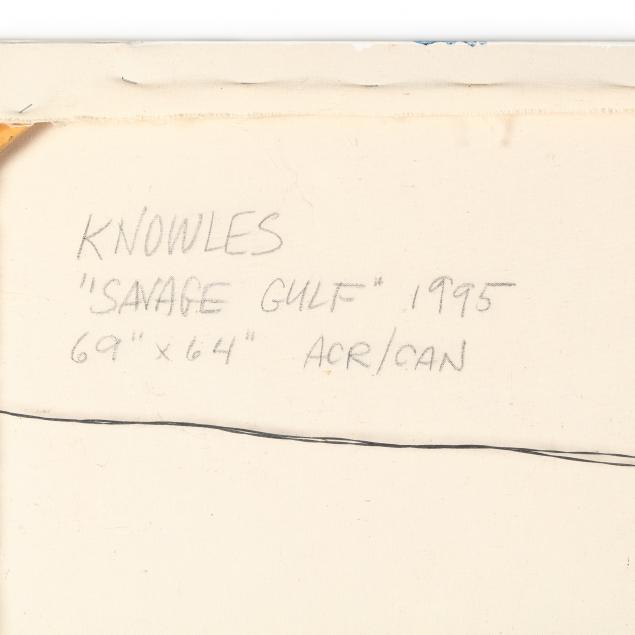 KNOWLES
"SAVAGE GULF" 1995
69" x 64" ACR/CAN